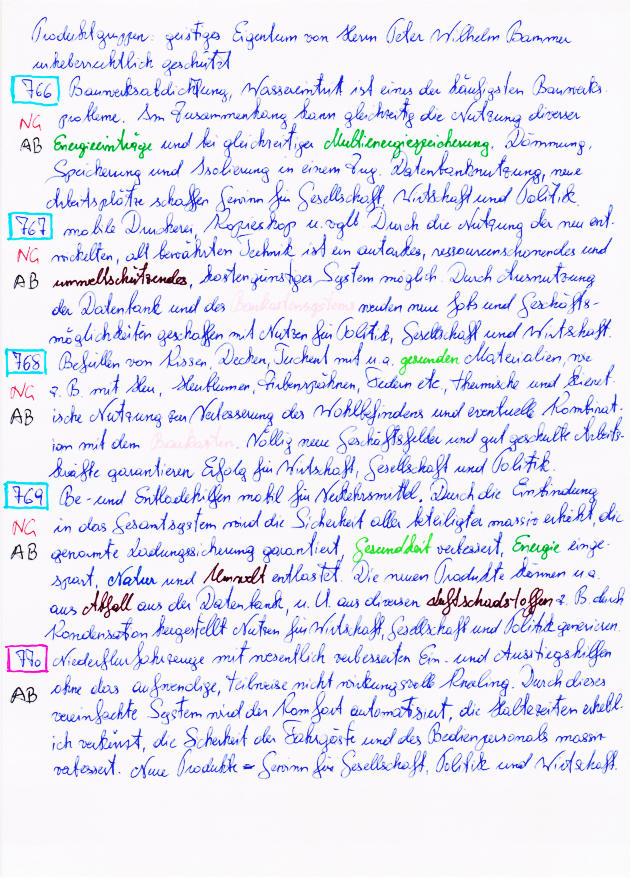 Produktgruppen: geistiges Eigentum von Herrn Peter Wilhelm Bammer
urheberrechtlich geschützt
766 Bauwerksabdichtung, Wassereintritt ist eines der häufigsten Bauwerks-
NG probleme. Im Zusammenhang kann gleichzeitig die Nutzung diverser
AB Energieeinträge und bei gleichzeitiger Multienergiespeicherung, Dämmung,
Speicherung und Isolierung in einem Zug. Datenbanknutzung, neue
Arbeitsplätze schaffen Gewinn für Gesellschaft, Wirtschaft und Politik.
767 mobile Druckerei, Kopieshop u. vglb Durch die Nutzung der neu ent-
NG wickelten, alt bewährten Technik ist ein autarkes, ressourcenschonendes und
AB umweltschützendes, kostengünstiges System möglich. Durch Ausnutzung
der Datenbank und des Baukastensystems werden neue Jobs und Geschäfts-
möglichkeiten geschaffen mit Nutzen für Politik, Gesellschaft und Wirtschaft.
768 Befüllen von Kissen, Decken, Tuchent mit u.a. gesunden Materialien, wie
NG z.B. mit Heu, Heublumen, Zirbenspähnen, Federn etc, thermische und
AB ische Nutzung zur Verbesserung des Wohlbefindens und eventuelle Kombinat-
ion mit dem Baukasten. Völlig neue Geschäftsfelder und gut geschulte Arbeits-
kräfte garantieren Erfolg für Wirtschaft, Gesellschaft und Politik.
769 Be- und Entladehilfen mobil für Verkehrsmittel. Durch die Einbindung
NG in das Gesamtsystem wird die Sicherheit aller beteiligter massiv erhöht, die
AB genormte Ladungssicherung garantiert, Gesundheit verbessert, Energie einge-
spart, Natur und Umwelt entlastet. Die neuen Produkte können u.a.
aus Abfall aus der Datenbank, u. U. aus diversen Luftschadstoffen z.B. durch
Kondensation hergestellt Nutzen für Wirtschaft, Gesellschaft und Politik generieren.
770 Niederflurfahrzeuge mit wesentlich verbesserten Ein- und Ausstiegshilfen
AB ohne das aufwendige, teilweise nicht wirkungsvolle Kneeling. Durch dieses
vereinfachte System wird der Komfort automatisiert, die Haltezeiten erhebl-
ich verkürzt, die Sicherheit der Fahrgäste und des Bedienpersonals massiv
verbessert. Neue Produkte = Gewinn für Gesellschaft, Politik und Wirtschaft.